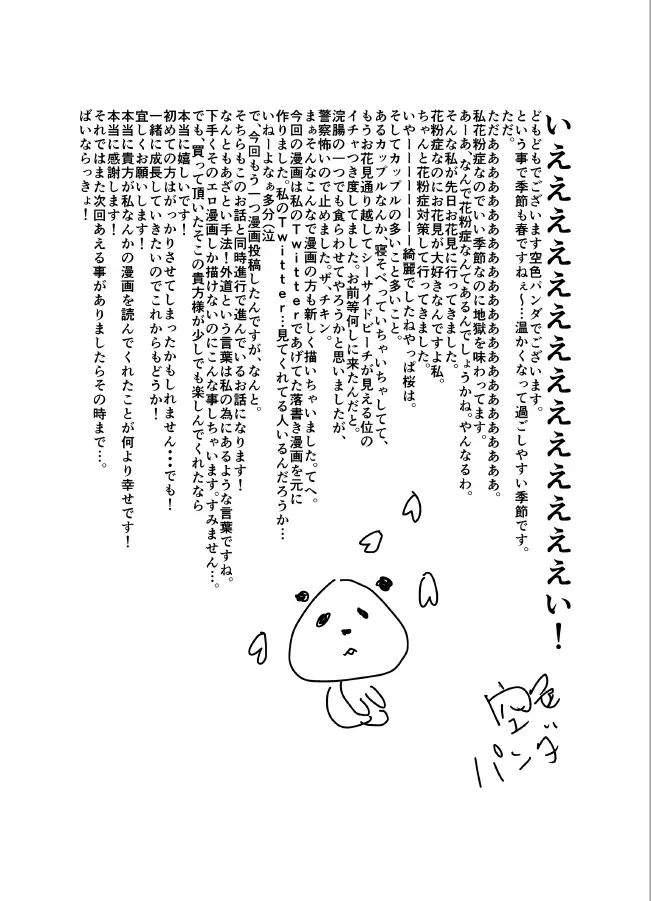 いええええええええええええええええい！
どもどもでございます空色パンダでございます。
という事で季節も春ですねぇ～…温かくなって過ごしやすい季節です。
ただ。
ただあああああああああああああああああああああああ。
私花粉症なのでいい季節なのに地獄を味わってます。
あーあ、なんで花粉症なんてあるんでしょうかね。やんなるわ。
そんな私が先日お花見に行ってきました。
花粉症なのにお花見が大好きなんですよ私。
ちゃんと花粉症対策して行ってきました。
いやーーーーーーーー綺麗でしたねやっぱ桜は。
そしてカップルの多いこと多いこと。
あるカップルなんか、寝そべっていちゃいちゃしてて、
もうお花見通り越してシーサイドビーチが見える位の
イチャつき度してました。お前等何しに来たんだと。
浣腸の一つでも食らわせてやろうかと思いましたが、
警察怖いので止めました。ザ、チキン。
まぁそんなこんなで漫画の方も新しく描いちゃいました。てへ。
今回の漫画は私のTwitterであげてた落書き漫画を元に
作りました。私のTwitter…見てくれてる人いるんだろうか…
いねーよなぁ多分(泣
で、今回もう一つ漫画投稿したんですが、なんと。
そちらもこのお話と同時進行で進んでいるお話になります！
なんともあざとい手法！外道という言葉は私の為にあるような言葉ですね。
下手くそのエロ漫画しか描けないのにこんな事しちゃいます。すみません…。
でも、買って頂いたそこの貴方様が少しでも楽しんでくれたなら
本当に嬉しいです！
初めての方はがっかりさせてしまったかもしれません・・・でも！
一緒に成長していきたいのでこれからもどうか！
宜しくお願いします！
本当に貴方が私なんかの漫画を読んでくれたことが何より幸せです！
本当に感謝します！
それではまた次回あえる事がありましたらその時まで…。
ばいならっきょ！
空色
パンダ